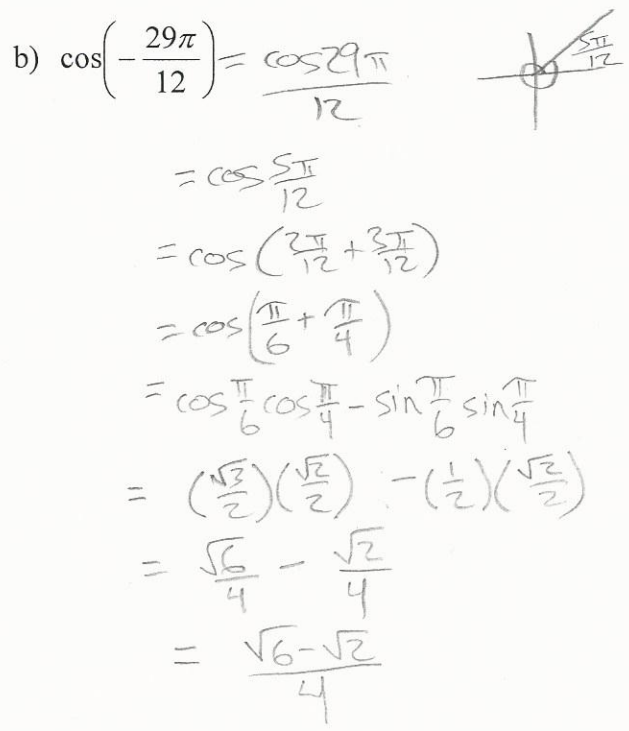 b) cos(-29π/12) = cos29π/12
5π/12
= cos 5π/12
= cos (2π/12 + 3π/12)
= cos (π/6 + π/4)
= cos π/6 cos π/4 - sin π/6 sin π/4
= (√3/2)(√2/2) - (1/2)(√2/2)
= √6/4 - √2/4
= √6-√2/4